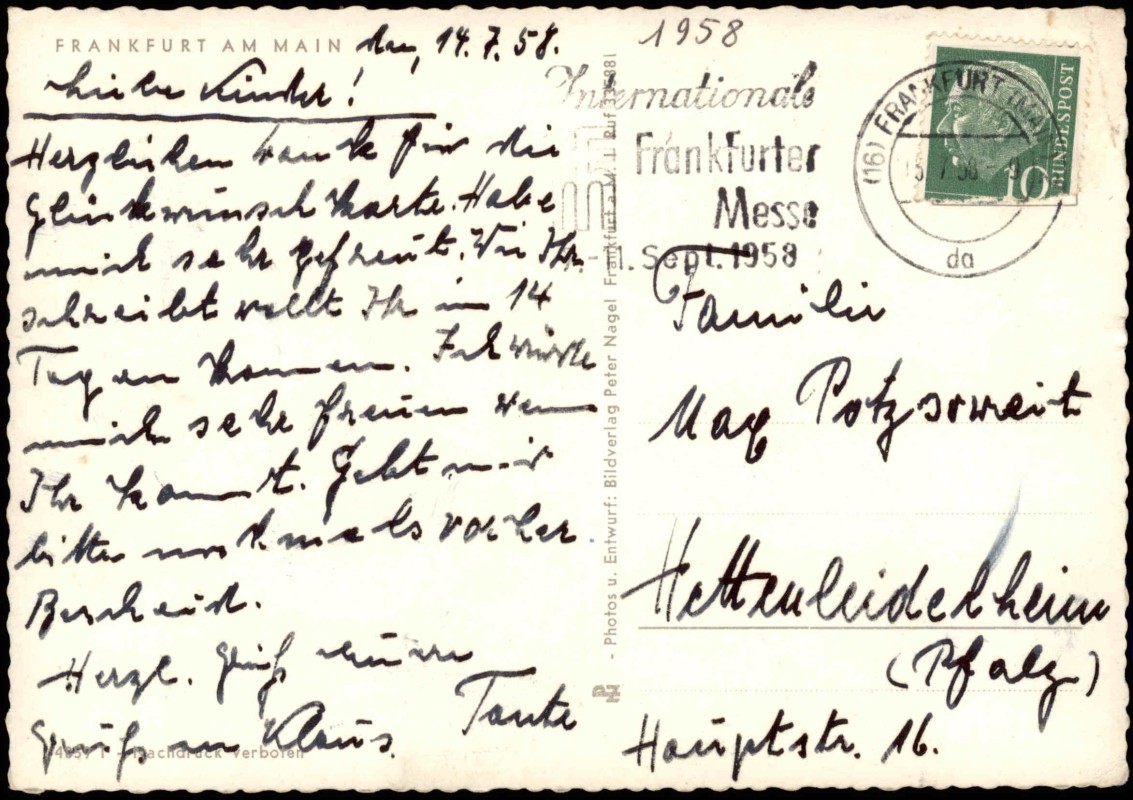 FRANKFURT AM MAIN den, 14.7.58.
Liebe Kinder!
Herzlichen Dank für die
Glückwunsch Karte. Habe
mich sehr gefreut. Wie Ihr
schreibt wollt Ihr in 14
Tagen kommen. Ich würde
mich sehr freuen wenn
Ihr kommt. Gebt mir
bitte nochmals vorher
Bescheid.
Herzl. Grüß euere
Tante
Grüß an Klaus.
Nachdruck verboten
- Photos u. Entwurf: Bildverlag Peter Nagel Frankfurt a. M. 1 Ruf
1958
Internationale
Frankfurter
Messe
-11. Sept. 1958
(16) FRANKFURT (MAIN)
15.7.58
da
10
BUNDESPOST
Familie
Max Potzsoweit
Hettenleidelheim
(Pfalz)
Hauptstr. 16.